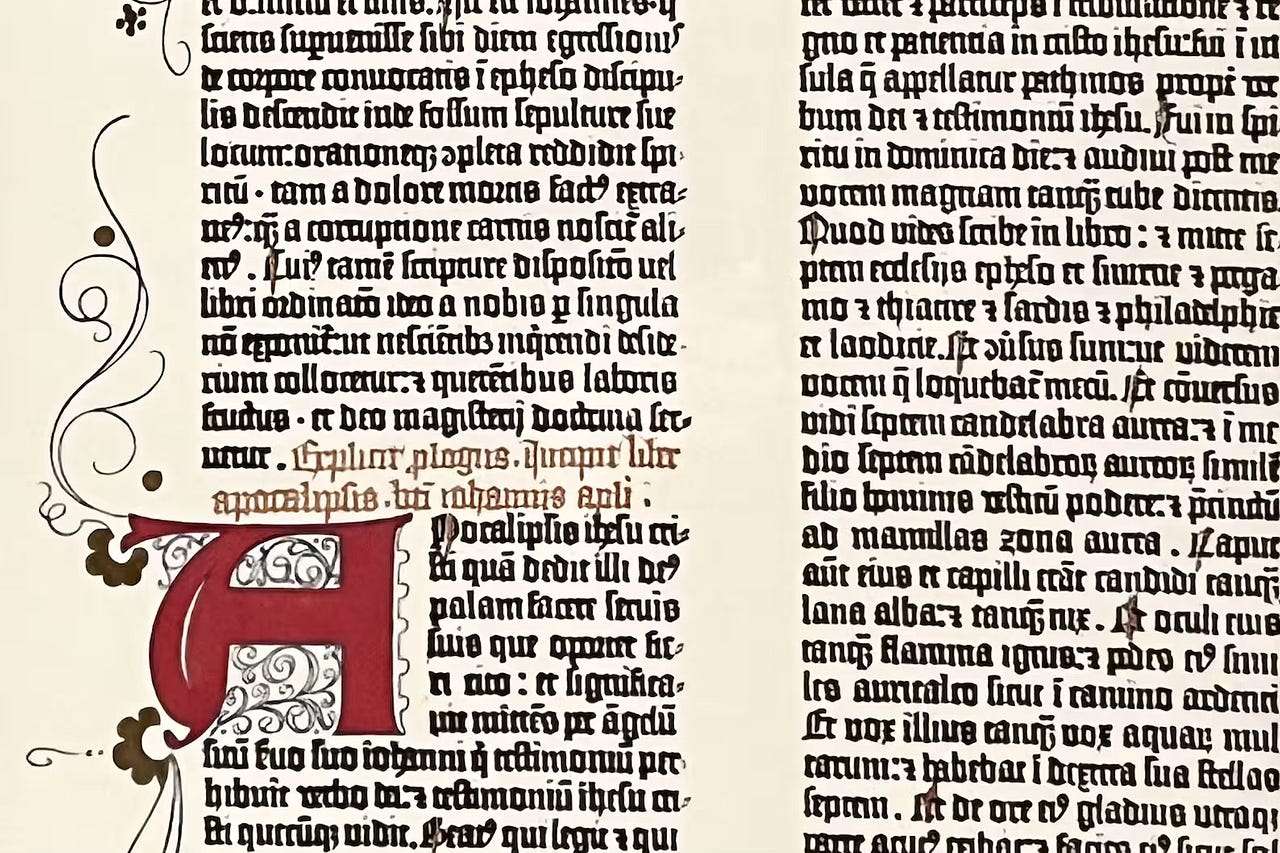 sciens supuenisse sibi diem egressionis
de corpore convocatis ī epheso discipu-
lis descendit inde fossum sepulture sue
locum: orationeqꝫ ↄpleta reddidit spi-
ritū · tam a dolore mortis factꝰ extra-
neꝰ: qꝫ̄ a corruptione carnis noscit᷑ ali-
enꝰ. Cuiꝰ tamē scripture dispositō uel
libri ordinatō ideo a nobis ꝑ singula
nō exponit᷑: ut nesciētibꝫ inq̇rendi deside-
rium collocetur: ⁊ querētibus laboris
fructus · et deo magisterij doctrina ser-
uetur. Explicit ꝓlogus. Incipit liber
apocalipsis · bt̄i iohannis apli :
Apocalipsis ihesu cri-
sti quā dedit illi deꝰ
palam facere seruis
suis que oportet fie-
ri cito : et significa-
uit mittēs per āgelū
suū suo iohanni q̇ testimoniū per-
hibuit verbo dei: ⁊ testimoniū ihesu cri-
sti quecūqꝫ vidit. Beatꝰ qui legit ⁊ qui
gno et patientia in cristo ihesu: fui ī in
sula q̄ appellatur pathmos propt̄ ver
bum dei ⁊ testimoniū ihesu. Fui in spi
ritu in dominica die: ⁊ audiui post me
vocem magnam tanqꝫ̄ tube dicentis
Quod vides scribe in libro : ⁊ mitte se
ptem ecclesijs epheso et smirne ⁊ perga
mo ⁊ thiatire ⁊ sardis ⁊ philadelphie
et laodicie. Et ↄūsus sum: ut viderem
vocem q̄ loquebat᷑ mecū. Et cōuersus
vidi septem candelabra aurea: ⁊ ī me
dio septem cādelabroꝝ aureoꝝ similē
filio hominis vestitū podere: ⁊ p̄cinctū
ad mamillas zona aurea . Caput
aūt eius et capilli erāt candidi tanqꝫ̄
lana alba: ⁊ tanqꝫ̄ nix . Et oculi eius
tanqꝫ̄ flamma ignis: ⁊ pedes eiꝰ simi
les auricalco sicut ī camino ardenti
Et vox illius tanqꝫ̄ vox aquaꝝ mul
tarum: ⁊ habebat ī dextera sua stellas
septem . Et de ore eiꝰ gladius utraqꝫ